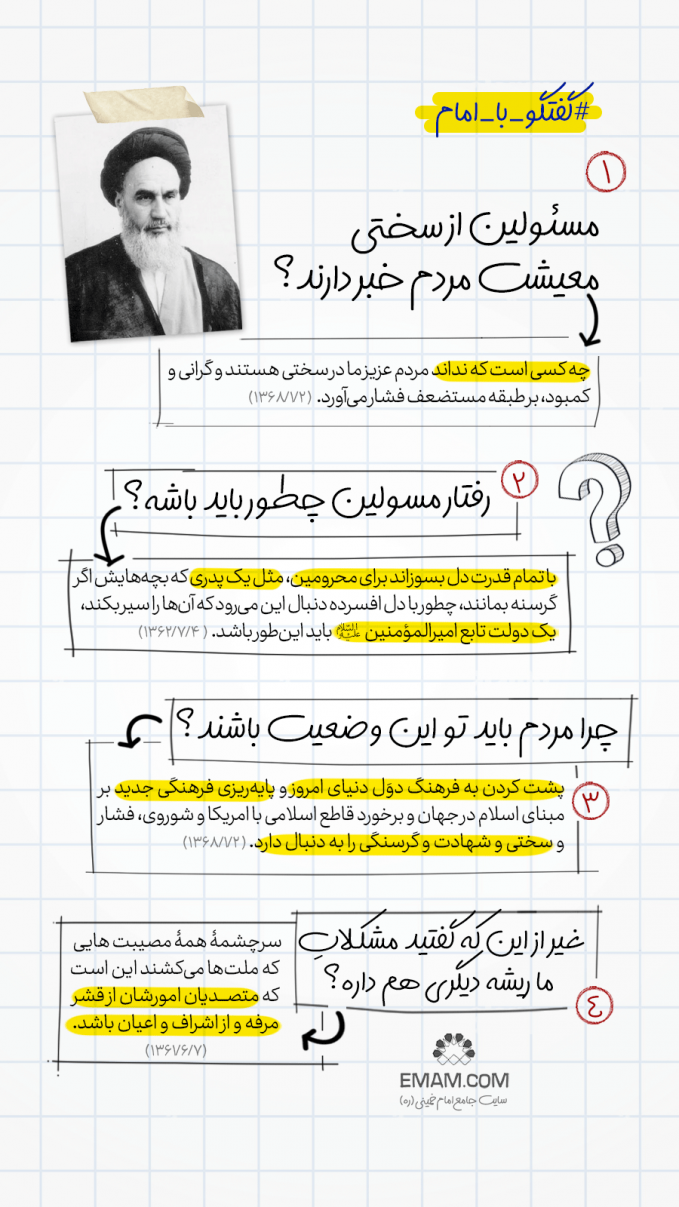 #گفتگو_با_امام
۱
مسئولین از سختی
معیشت مردم خبر دارند؟
چه کسی است که نداند مردم عزیز ما در سختی هستند و گرانی و
کمبود، بر طبقه مستضعف فشار می‌آورد. (۱۳۶۸/۱/۲)
۲
رفتار مسولین چطور باید باشه؟
با تمام قدرت دل بسوزاند برای محرومین، مثل یک پدری که بچه‌هایش اگر
گرسنه بمانند، چطور با دل افسرده دنبال این می‌رود که آن‌ها را سیر بکند،
یک دولت تابع امیرالمؤمنین علیه‌السلام باید این‌طور باشد. (۱۳۶۲/۷/۴)
چرا مردم باید تو این وضعیت باشند؟
۳
پشت کردن به فرهنگ دوَل دنیای امروز و پایه‌ریزی فرهنگی جدید بر
مبنای اسلام در جهان و برخورد قاطع اسلامی با امریکا و شوروی، فشار
و سختی و شهادت و گرسنگی را به دنبال دارد. (۱۳۶۸/۱/۲)
غیر از این که گفتید مشکلاتِ
ما ریشه دیگری هم داره؟
۴
سرچشمهٔ همهٔ مصیبت هایی
که ملت‌ها می‌کشند این است
که متصدیان امورشان از قشر
مرفه و از اشراف و اعیان باشد.
(۱۳۶۱/۶/۷)
EMAM.COM
سایت جامع امام خمینی (ره)